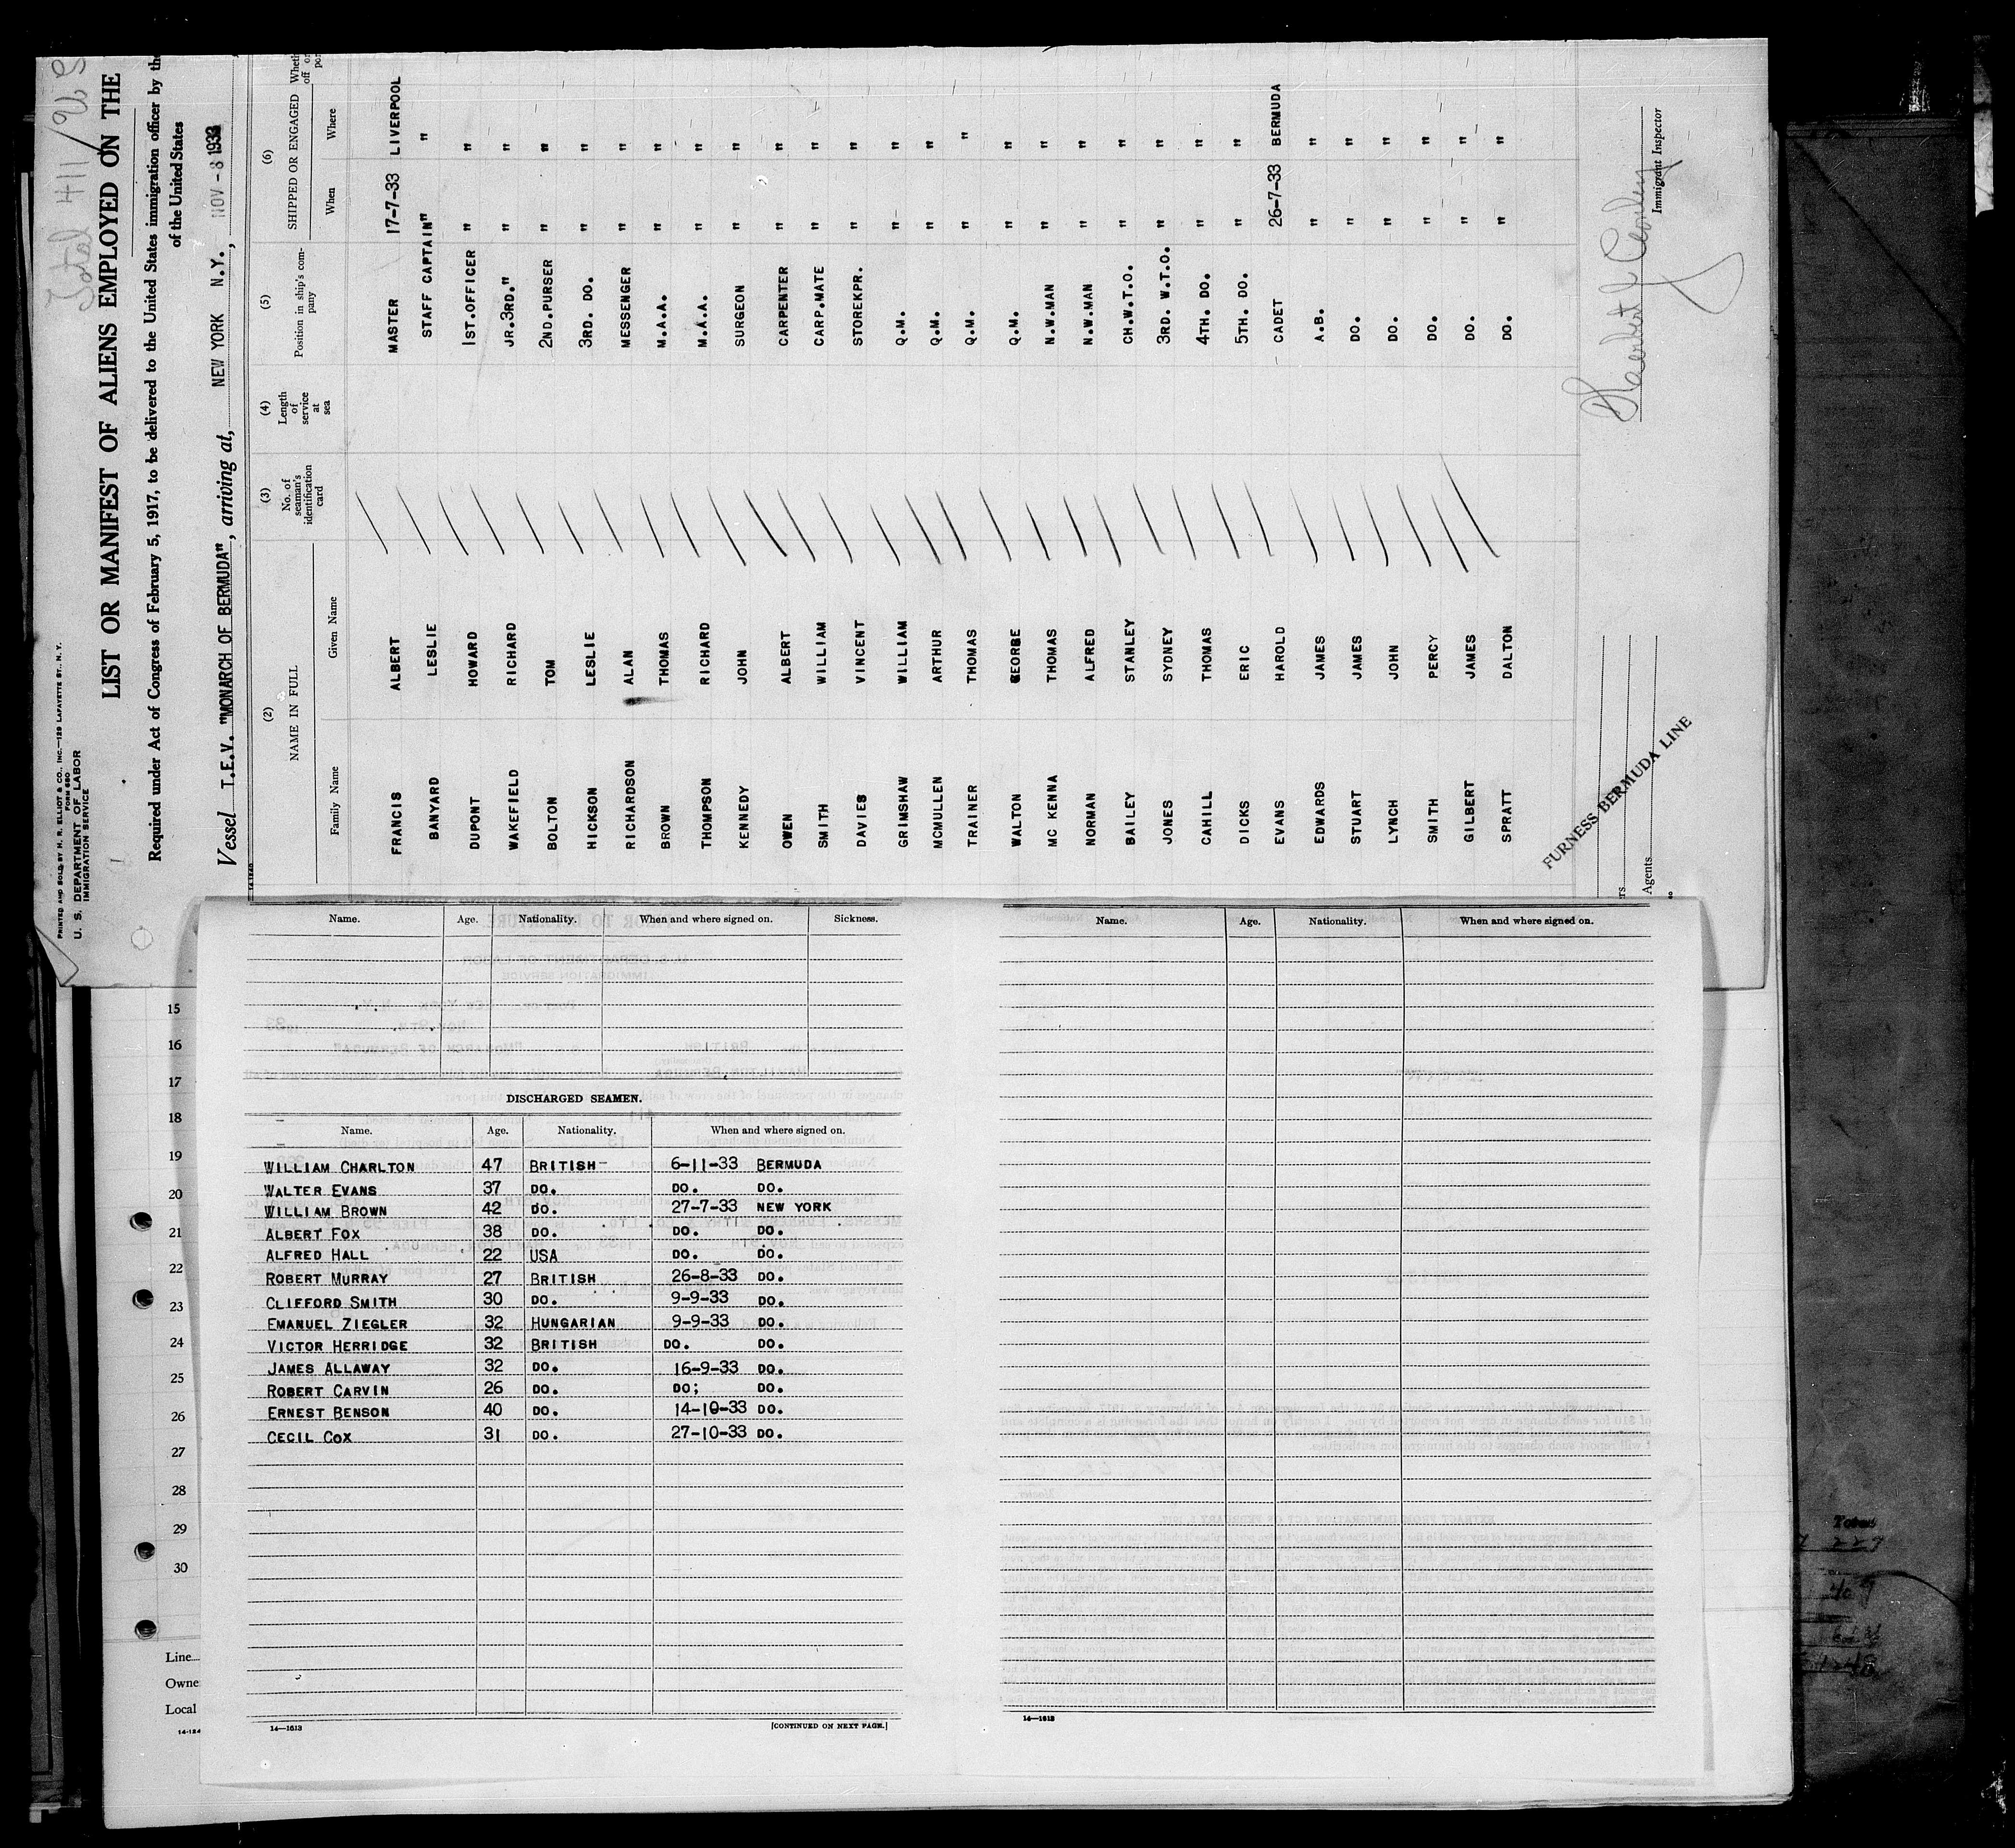 Total 411/U.S
PRINTED AND SOLD BY H. R. ELLIOT & CO., INC.—129 LAFAYETTE ST., N. Y.
FORM 680
U. S. DEPARTMENT OF LABOR
IMMIGRATION SERVICE
LIST OR MANIFEST OF ALIENS EMPLOYED ON THE
Required under Act of Congress of February 5, 1917, to be delivered to the United States immigration officer by the
of the United States
Vessel T.E.V. "MONARCH OF BERMUDA", arriving at, NEW YORK N.Y., NOV - 8 1933
(2) (3) (4) (5) (6)
NAME IN FULL No. of seaman's identification card Length of service at sea Position in ship's company SHIPPED OR ENGAGED
Family Name Given Name When Where
FRANCIS ALBERT MASTER 17-7-33 LIVERPOOL
BANYARD LESLIE STAFF CAPTAIN " "
DUPONT HOWARD 1ST.OFFICER " "
WAKEFIELD RICHARD JR.3RD." " "
BOLTON TOM 2ND.PURSER " "
HICKSON LESLIE 3RD. DO. " "
RICHARDSON ALAN MESSENGER " "
BROWN THOMAS M.A.A. " "
THOMPSON RICHARD M.A.A. " "
KENNEDY JOHN SURGEON " "
OWEN ALBERT CARPENTER " "
SMITH WILLIAM CARP.MATE " "
DAVIES VINCENT STOREKPR. " "
GRIMSHAW WILLIAM Q.M. " "
MCMULLEN ARTHUR Q.M. " "
TRAINER THOMAS Q.M. " "
WALTON GEORGE Q.M. " "
MC KENNA THOMAS N.W.MAN " "
NORMAN ALFRED N.W.MAN " "
BAILEY STANLEY CH.W.T.O. " "
JONES SYDNEY 3RD. W.T.O. " "
CAHILL THOMAS 4TH. DO. " "
DICKS ERIC 5TH. DO. " "
EVANS HAROLD CADET 26-7-33 BERMUDA
EDWARDS JAMES A.B. " "
STUART JAMES DO. " "
LYNCH JOHN DO. " "
SMITH PERCY DO. " "
GILBERT JAMES DO. " "
SPRATT DALTON DO. " "
FURNESS BERMUDA LINE
Agents
Immigrant Inspector
Name. Age. Nationality. When and where signed on. Sickness.
DISCHARGED SEAMEN.
Name. Age. Nationality. When and where signed on.
WILLIAM CHARLTON 47 BRITISH 6-11-33 BERMUDA
WALTER EVANS 37 DO. DO. DO.
WILLIAM BROWN 42 DO. 27-7-33 NEW YORK
ALBERT FOX 38 DO. DO. DO.
ALFRED HALL 22 USA DO. DO.
ROBERT MURRAY 27 BRITISH 26-8-33 DO.
CLIFFORD SMITH 30 DO. 9-9-33 DO.
EMANUEL ZIEGLER 32 HUNGARIAN 9-9-33 DO.
VICTOR HERRIDGE 32 BRITISH DO. DO.
JAMES ALLAWAY 32 DO. 16-9-33 DO.
ROBERT CARVIN 26 DO. DO; DO.
ERNEST BENSON 40 DO. 14-10-33 DO.
CECIL COX 31 DO. 27-10-33 DO.
14—1613 [CONTINUED ON NEXT PAGE.]
Name. Age. Nationality. When and where signed on.
14—1613
15
16
17
18
19
20
21
22
23
24
25
26
27
28
29
30
Line
Owne
Local
Total
227
409
1248